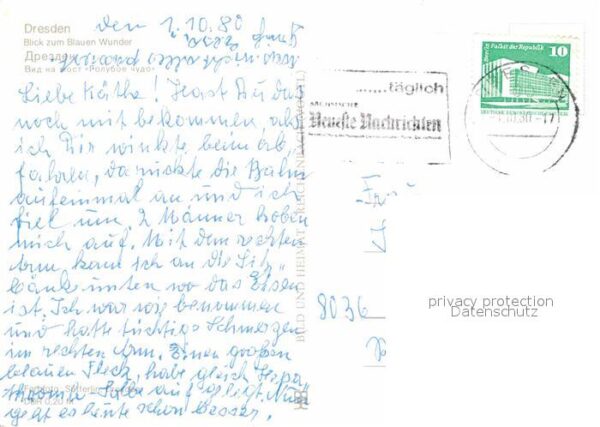 Dresden
Blick zum Blauen Wunder
Дрезден
Вид на мост «Голубое чудо»
den 1.10.80
Liebe Käthe! Hast Du das
noch mit bekommen, als
ich Dir winkte, beim ab,
fahren, da rückte die Bahn
aufeinmal an und ich
fiel um, 2 Männer hoben
mich auf. Mit dem rechten
Arm kam ich an die Sitz,,
bänke unten wo das Eisen
ist. Ich war wie benommen
und hatte tüchtige Schmerzen
im rechten Arm. Einen großen
blauen Fleck, habe gleich Hepa
thromb-Salbe auf gelegt. Nun
geht es heute schon besser.
EVP 0,20 M
BILD UND HEIMAT REICHENBACH
......täglich
SÄCHSISCHE
Neueste Nachrichten
Berlin Palast der Republik
10
DEUTSCHE DEMOKRATISCHE REPUBLIK
80-17
Frau
8036
privacy protection
Datenschutz